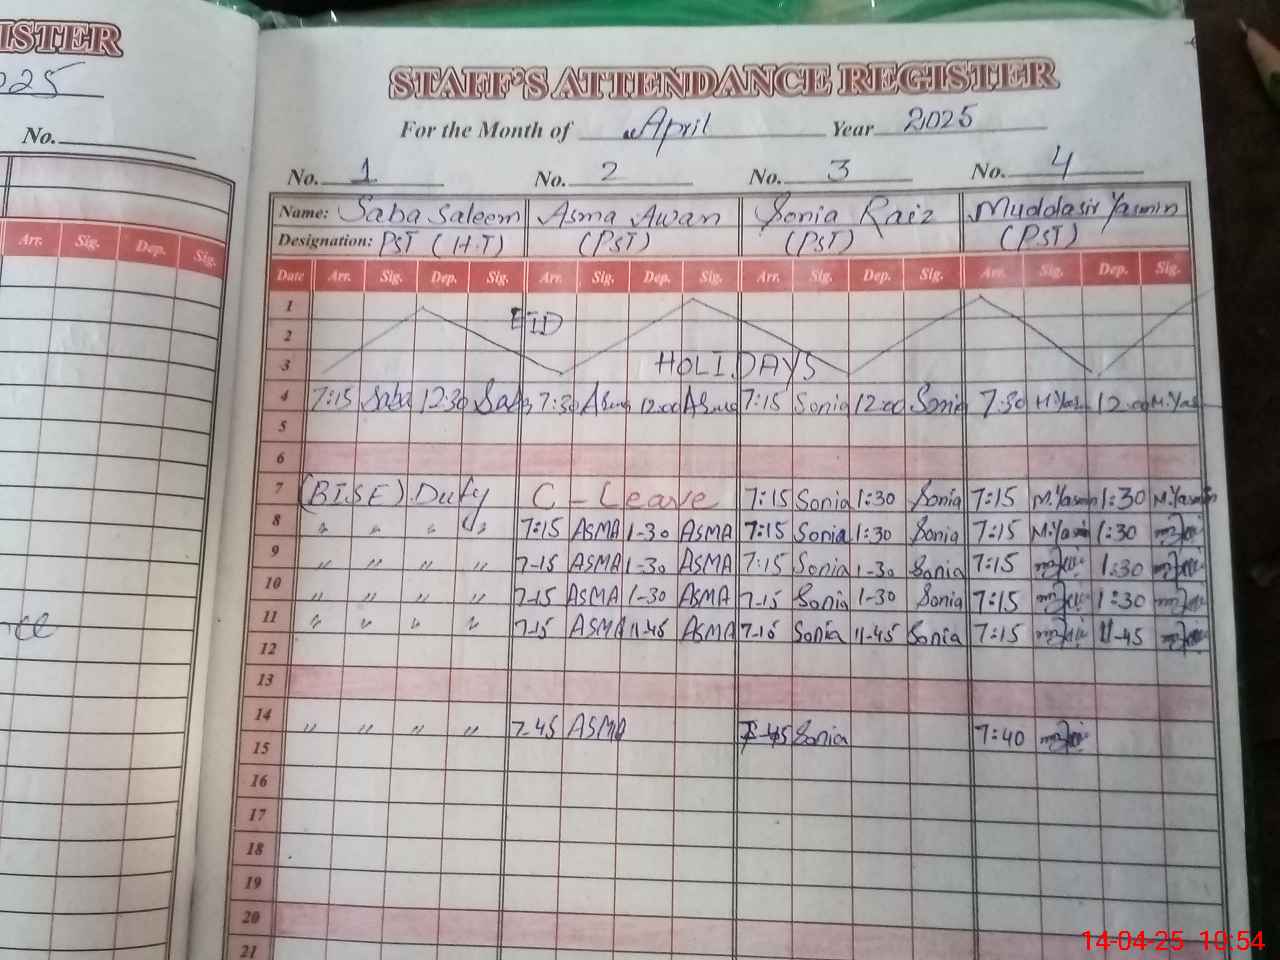 ISTER
025
No.
Arr. Sig. Dep. Sig.
STAFF'S ATTENDANCE REGISTER
For the Month of April Year 2025
No. 1 No. 2 No. 3 No. 4
Name: Saba Saleem Asma Awan Sonia Raiz Muddasir Yasmin
Designation: PST (H.T) (PST) (PST) (PST)
Date Arr. Sig. Dep. Sig. Arr. Sig. Dep. Sig. Arr. Sig. Dep. Sig. Arr. Sig. Dep. Sig.
1
2 EID
3 HOLIDAYS
4 7:15 Saba 12:30 Saba 7:30 Asma 12:00 Asma 7:15 Sonia 12:00 Sonia 7:30 M.Yas 12:00 M.Yas
5
6
7 (BISE) Duty C - Leave 7:15 Sonia 1:30 Sonia 7:15 M.Yasmin 1:30 M.Yasmin
8 " " " " 7:15 ASMA 1-30 ASMA 7:15 Sonia 1:30 Sonia 7:15 M.Yasmin 1:30
9 " " " " 7-15 ASMA 1-30 ASMA 7:15 Sonia 1-30 Sonia 7:15 1:30
10 " " " " 7-15 ASMA 1-30 ASMA 7-15 Sonia 1-30 Sonia 7:15 1:30
11 " " " " 7-15 ASMA 11-45 ASMA 7-15 Sonia 11-45 Sonia 7:15 11-45
12
13
14 " " " " 7-45 ASMA 7-45 Sonia 7:40
15
16
17
18
19
20
21
14-04-25 10:54